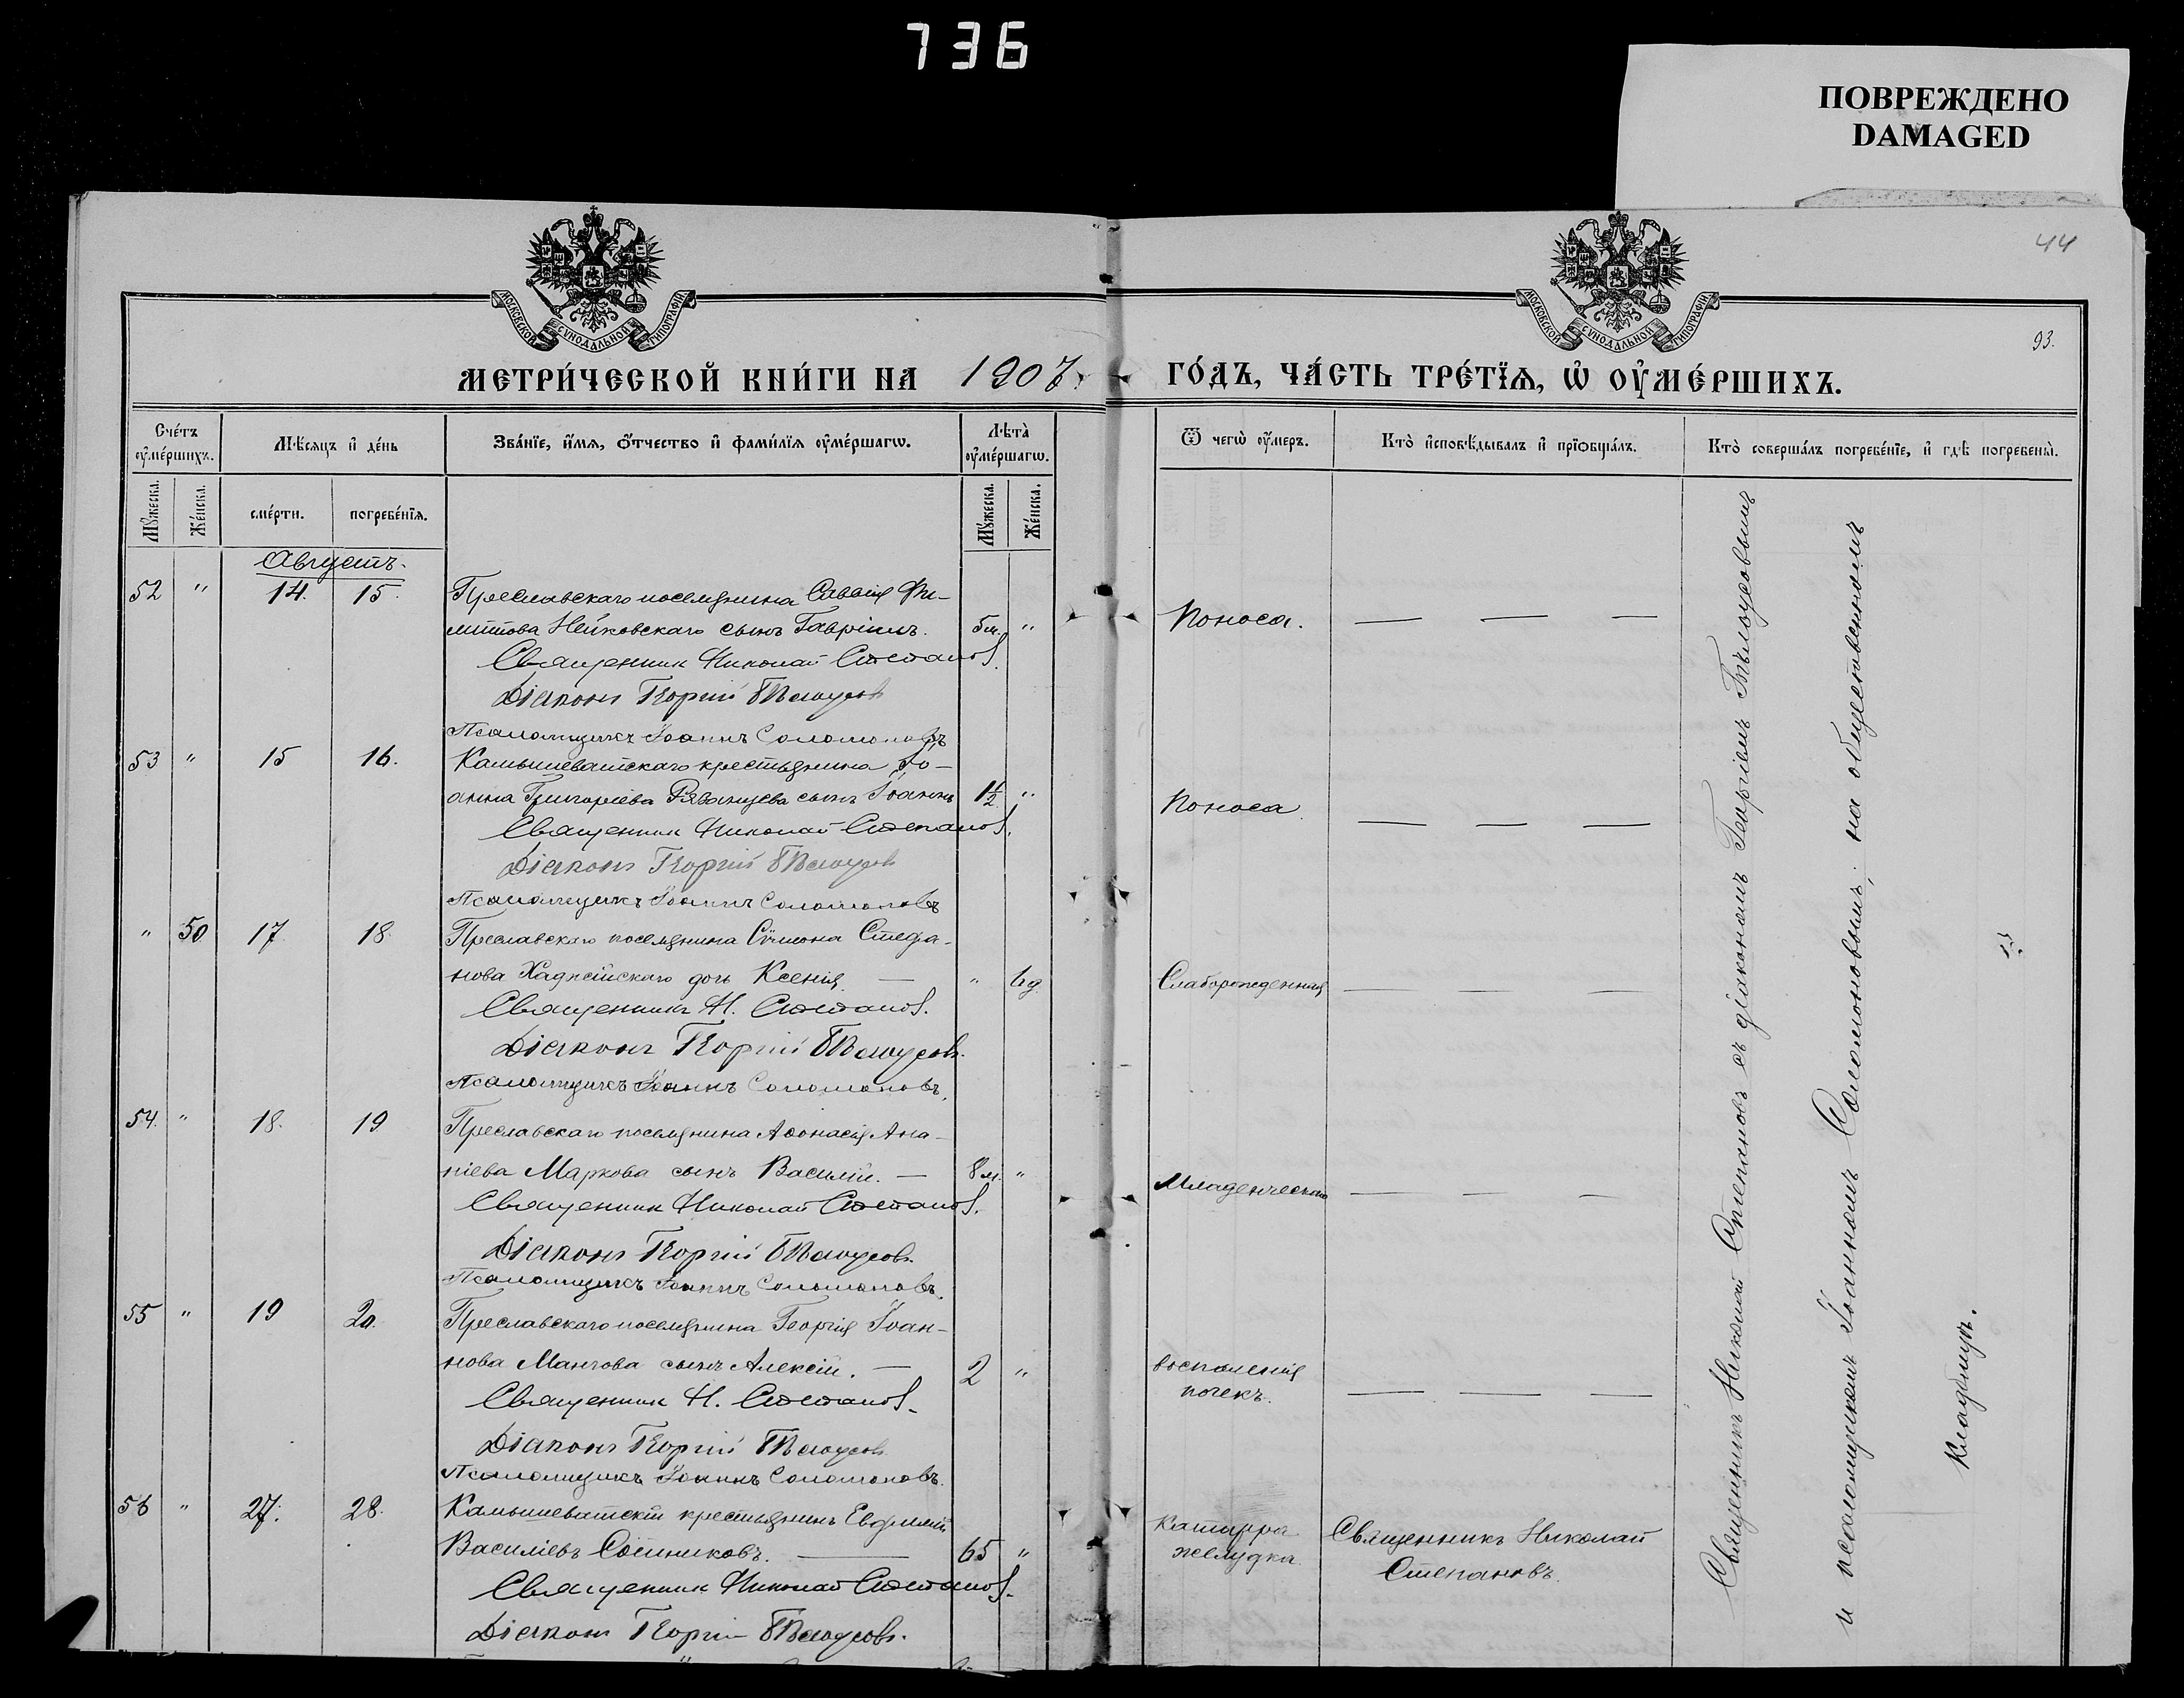 736
ПОВРЕЖДЕНО
DAMAGED
44
93.
МОСКОВСКОЙ СѴНОДАЛЬНОЙ ТИПОГРАФІИ
МОСКОВСКОЙ СѴНОДАЛЬНОЙ ТИПОГРАФІИ
МЕТРИ́ЧЕСКОЙ КНИ́ГИ НА 1907
ГО́ДЪ, ЧА́СТЬ ТРЕ́ТЇѦ, Ѡ҆ ОУ҆МЕ́РШИХЪ.
Сче́тъ оу҆ме́ршихъ.
Мѣ́сяцъ и҆ де́нь
Зва́нїе, и҆́мѧ, ѻ҆́тчество и҆ фами́лїѧ оу҆ме́ршагѡ.
Лѣ́та оу҆ме́ршагѡ.
Ѿ чегѡ̀ оу҆́меръ.
Кто̀ и҆сповѣ́дывалъ и҆ прїѻбща́лъ.
Кто̀ соверша́лъ погребе́нїе, и҆ гдѣ̀ погребены̀.
Мꙋ́жеска.
Же́нска.
сме́рти.
погребе́нїѧ.
Мꙋ́жеска.
Же́нска.
Августъ.
52 " 14. 15. Преславскаго поселянина Саввы Фи-
липпова Нейковскаго сынъ Гавріилъ. 5м. " Поноса. — — —
Священникъ Николай Степановъ.
Діаконъ Георгій Бѣлоусовъ
Псаломщикъ Іоаннъ Соломоновъ
53 " 15 16. Камышеватскаго крестьянина Іо-
анна Григоріева Рязанцева сынъ Іоаннъ 1½ " Поноса. — — —
Священникъ Николай Степановъ.
Діаконъ Георгій Бѣлоусовъ
Псаломщикъ Іоаннъ Соломоновъ
" 50 17. 18. Преславскаго поселянина Сѵмеона Стефа-
нова Хаджійскаго дочь Ксенія. — " 6д. Слаборожденная — — —
Священникъ Н. Степановъ.
Діаконъ Георгій Бѣлоусовъ.
Псаломщикъ Іоаннъ Соломоновъ.
54. " 18. 19 Преславскаго поселянина Аѳонасія Ана-
ніева Маркова сынъ Василій. — 8м. " Младенческой — — —
Священникъ Николай Степановъ.
Діаконъ Георгій Бѣлоусовъ.
Псаломщикъ Іоаннъ Соломоновъ.
55 " 19 20. Преславскаго поселянина Георгія Іоан-
нова Манчова сынъ Алексій. — 2 " воспаленія
почекъ. — — —
Священникъ Н. Степановъ.
Діаконъ Георгій Бѣлоусовъ
Псаломщикъ Іоаннъ Соломоновъ.
56 " 27. 28. Камышеватскій крестьянинъ Евфимій
Василіевъ Сотниковъ. — 65 " Катарра
желудка. Священникъ Николай
Степановъ.
Священникъ Николай Степановъ.
Діаконъ Георгій Бѣлоусовъ.
Священникъ Николай Степановъ съ діакономъ Георгіемъ Бѣлоусовымъ
и псаломщикомъ Іоанномъ Соломоновымъ; на общественномъ
кладбищѣ.